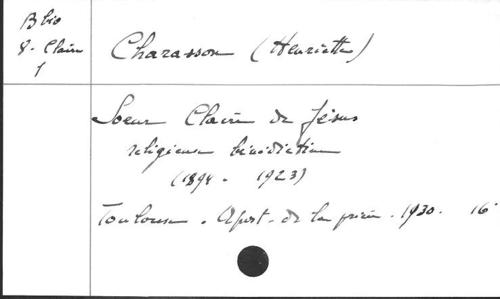 B bio
8 - Claire
1
Charasson (Henriette)
Soeur Claire de Jésus
religieuse bénédictine
(1894 - 1923)
Toulouse. Apost. de la prière. 1930. 16°